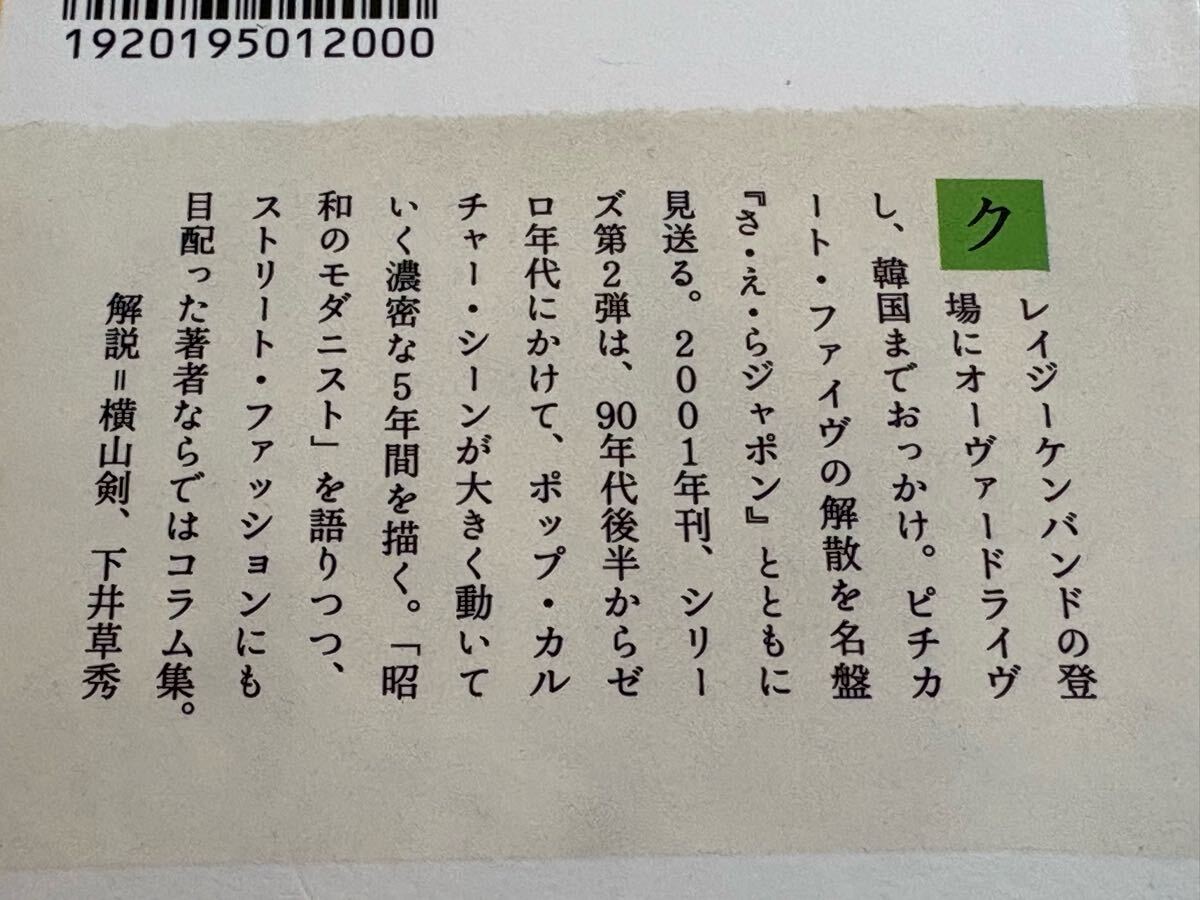 1920195012000
クレイジーケンバンドの登
場にオーヴァードライヴ
し、韓国までおっかけ。ピチカ
ート・ファイヴの解散を名盤
『さ・え・らジャポン』とともに
見送る。2001年刊、シリー
ズ第2弾は、90年代後半からゼ
ロ年代にかけて、ポップ・カル
チャー・シーンが大きく動いて
いく濃密な5年間を描く。「昭
和のモダニスト」を語りつつ、
ストリート・ファッションにも
目配った著者ならではコラム集。
解説=横山剣、下井草秀